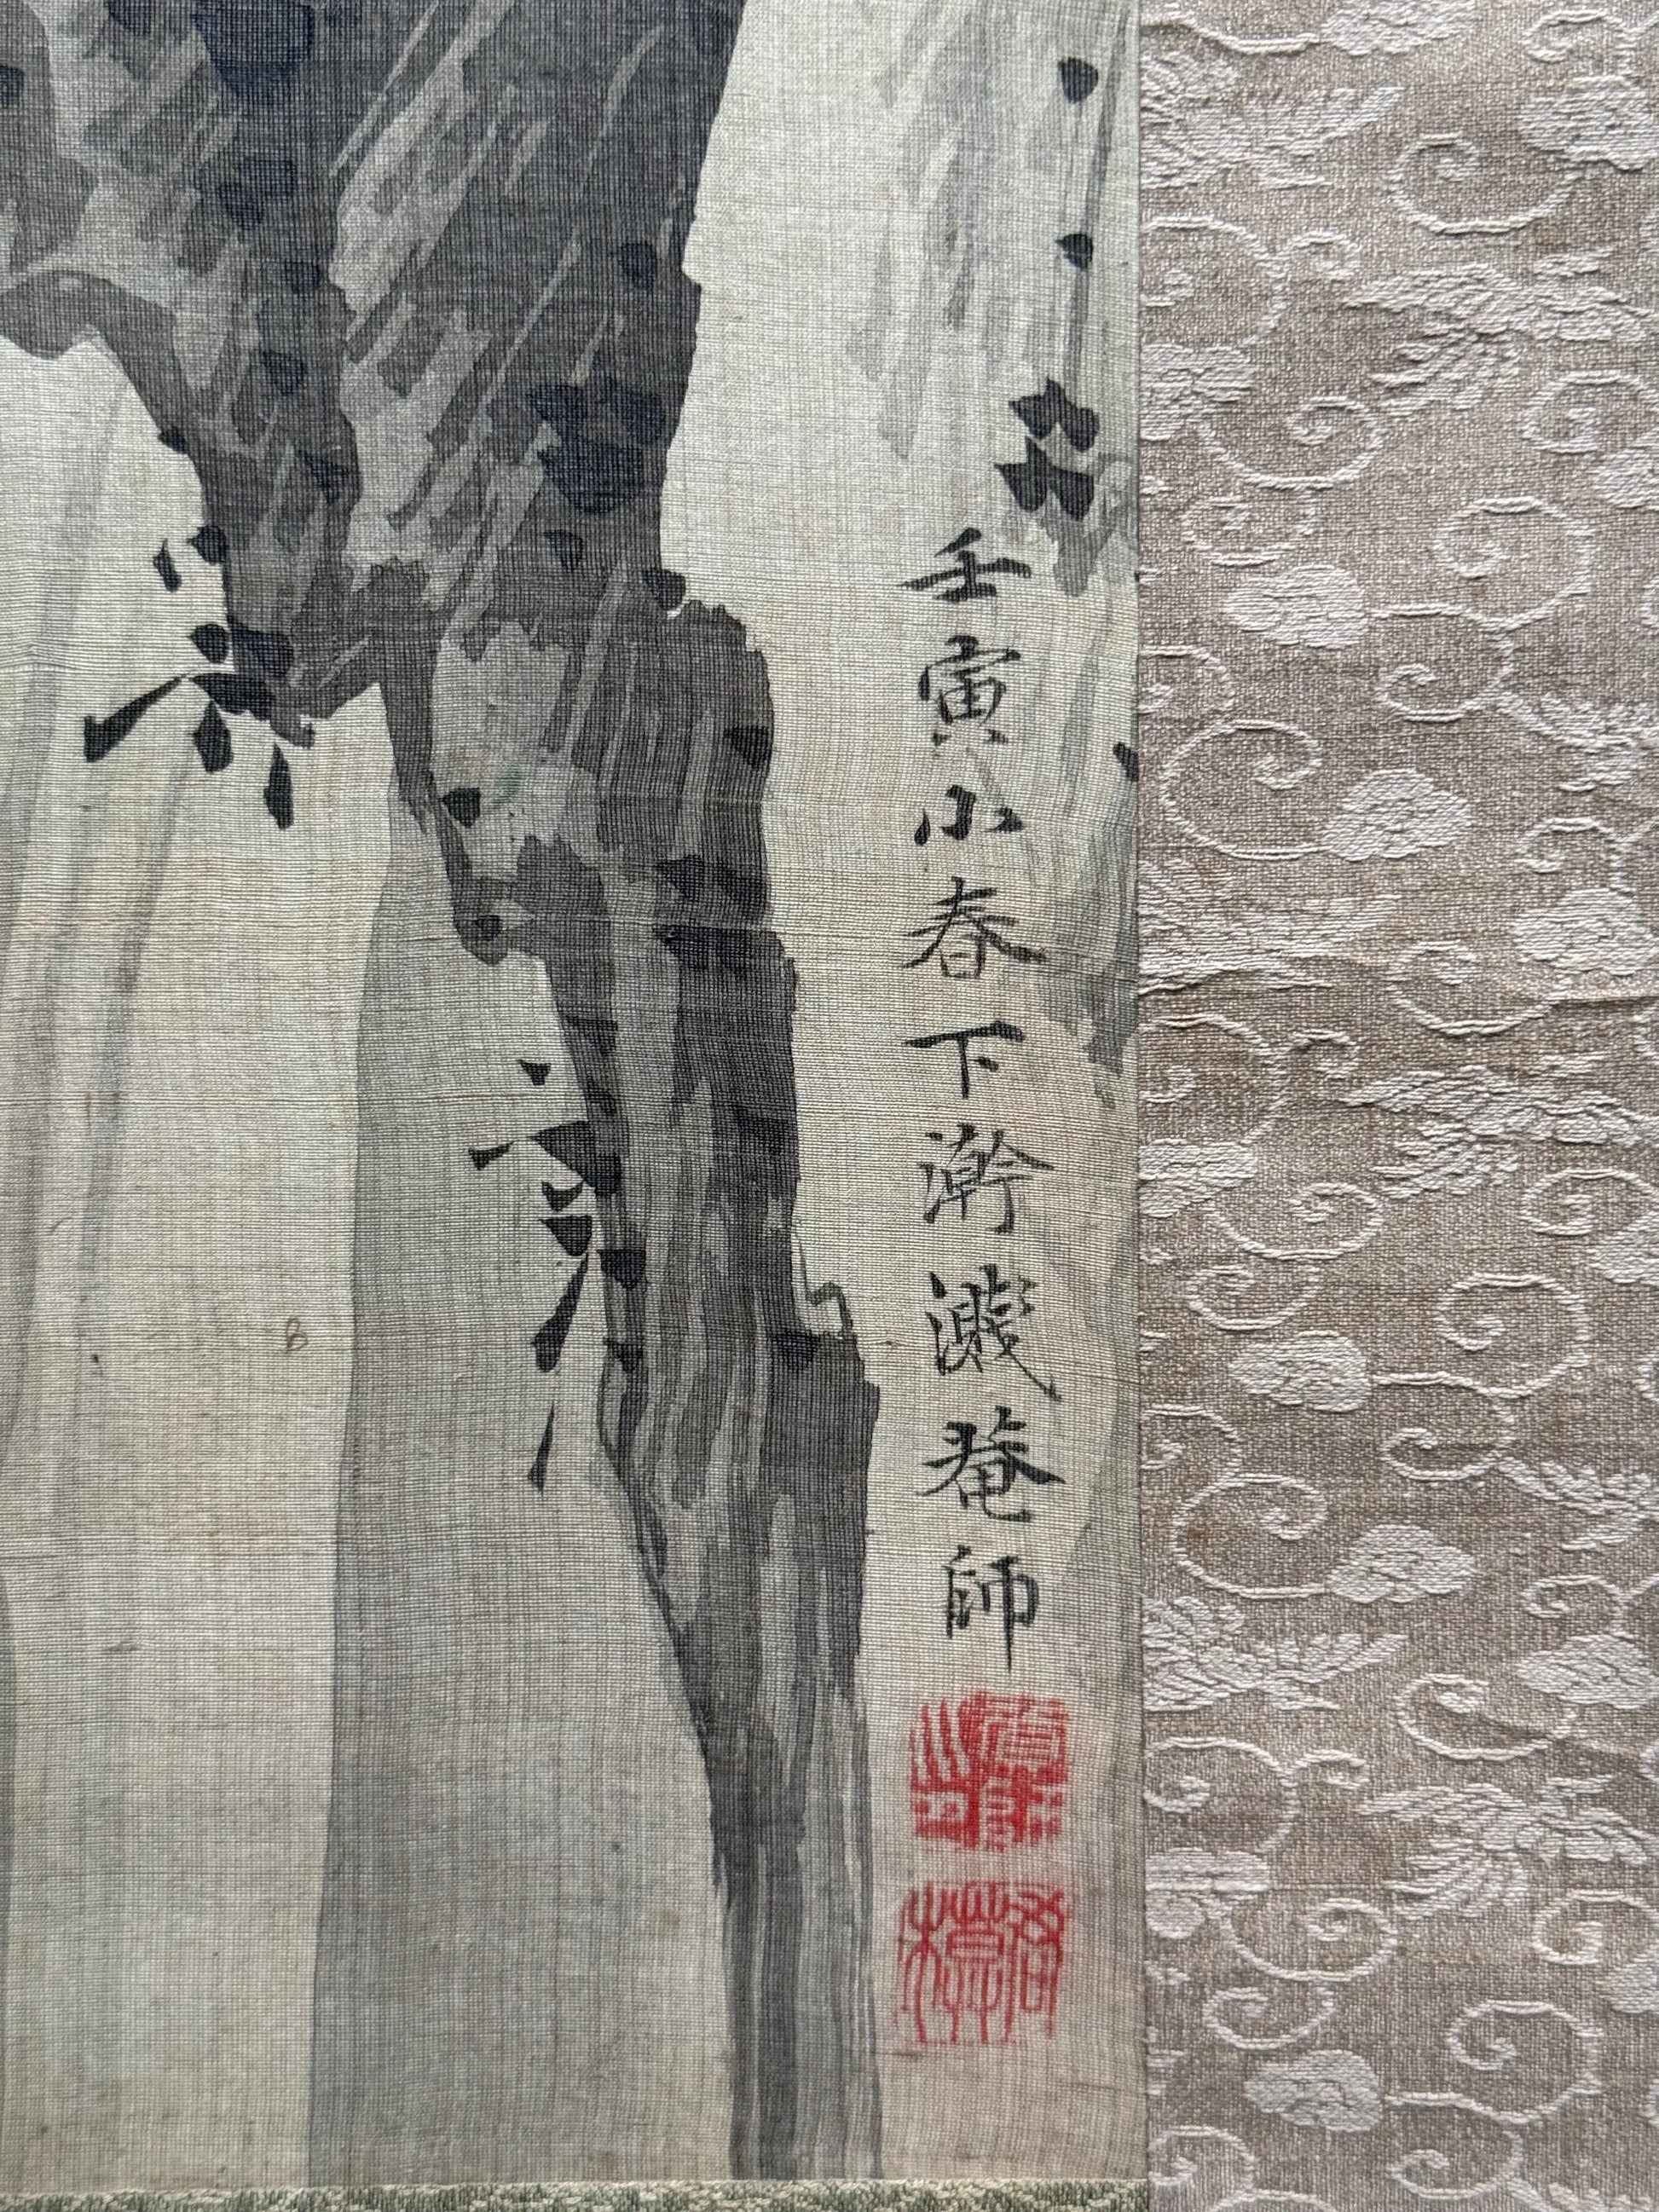 壬寅小春下澣濺菴師